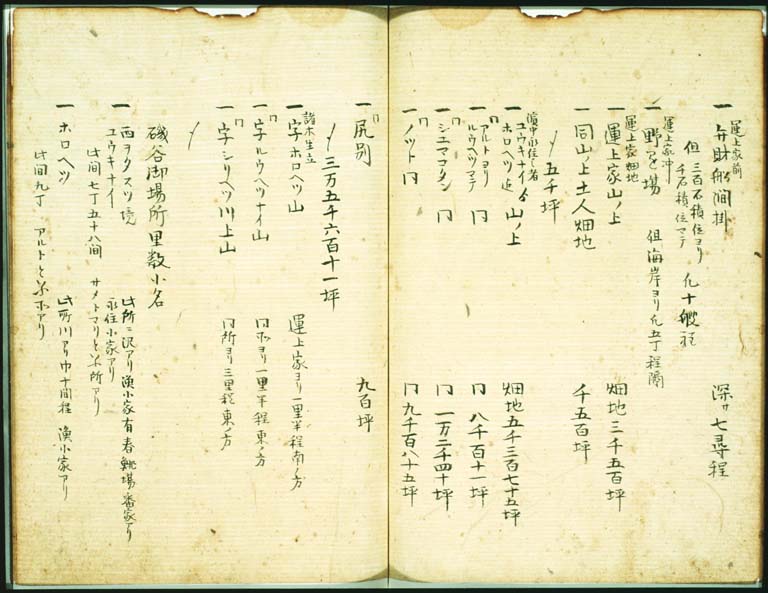 運上家前
一 弁財船間掛 深サ七尋程
但 三百石積位ヨリ
千石積位マテ 凡十艘程
運上家沖
一 野を場 但海岸ヨリ凡五丁程隔
運上家畑地
一 運上家山ノ上 畑地三千五百坪
一 同山ノ上土人畑地 千五百坪
〆五千坪
濱中永住之者
一 ユウキナイゟ
ホロヘツ迄 山ノ上 畑地五千三百七十五坪
一 アルトヨリ
ルウヘツマテ 同 八千百十一坪
一 シユマコタン 同 同 一万二千四十坪
一 ノツト 同 同 九千百八十五坪
一 尻別 九百坪
〆三万五千六百十一坪
諸木生立
一 字ホロヘツ山 運上家ヨリ一里半程南ノ方
一 字ルウヘツナイ山 同所ヨリ一里半程東ノ方
一 字シリヘツ川上山 同所ヨリ三里程東ノ方
〆
磯谷御場所里数小名
一 西ヲタスツ境
ユウキナイ 此所ニ沢アリ漁小家有春鯡場ノ番家アリ
永住小家アリ
此間七丁五十八間 サメトマリと云所アリ
一 ホロヘツ 此所川アリ巾十間程 漁小家アリ
此間九丁 アルトと云所アリ